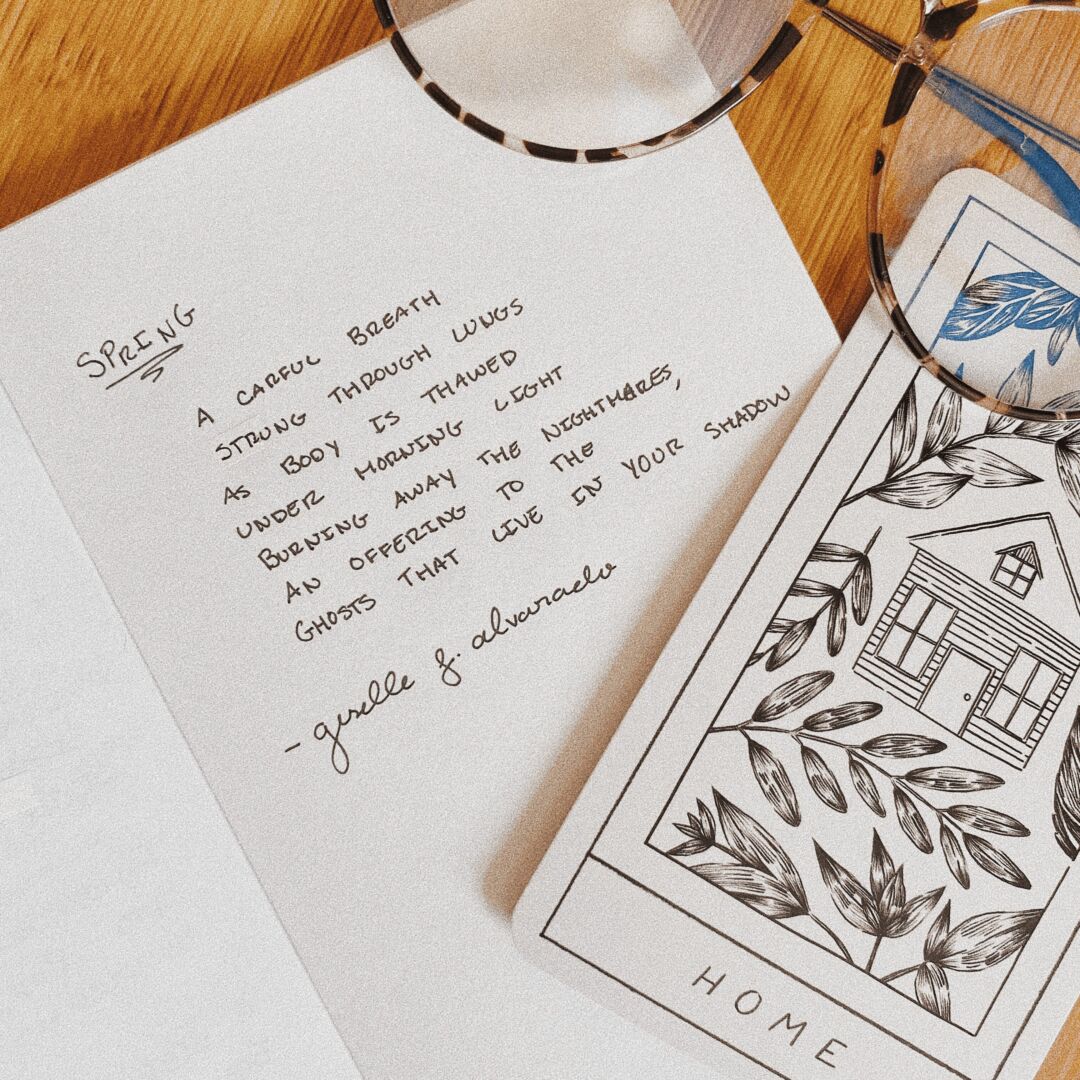 SPRING
A CARFUL BREATH
STRUNG THROUGH LUNGS
AS BODY IS THAWED
UNDER MORNING LIGHT
BURNING AWAY THE NIGHTMARES,
AN OFFERING TO THE
GHOSTS THAT LIVE IN YOUR SHADOW
- giselle f. alvarado
HOME